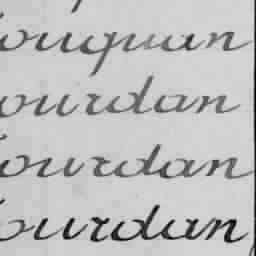 ouquan
ourdan
ourdan
ourdan